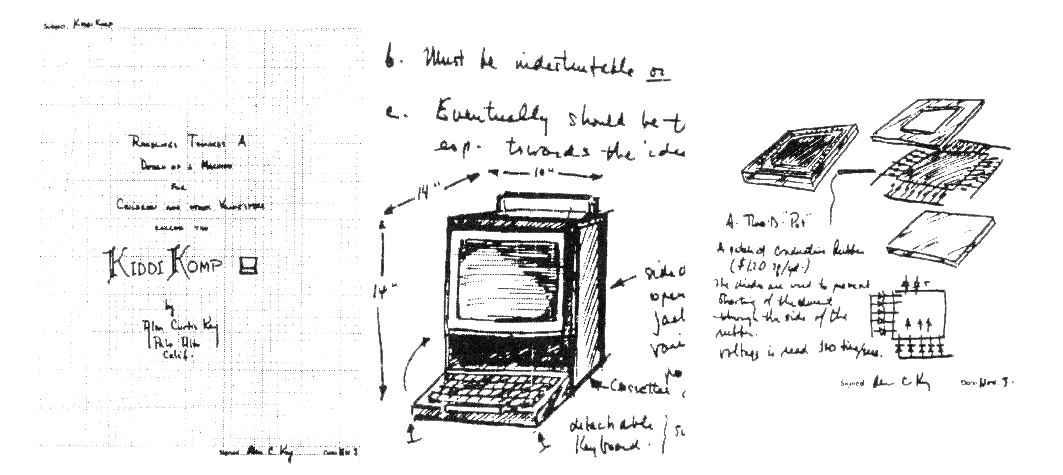 Subject: Kiddi Komp
Ramblings Towards A
Design of a Machine
For
Children and other
called the
KIDDI KOMP
by
Alan Curtis Kay
Palo Alto
Calif.
Signed Alan C Kay Date Nov 5
b. Must be indestructable or
c. Eventually should be t
esp. towards the idea
14"
10"
14"
sided
open
jack
Cassettes
detachable
Keyboard.
A. Two-D. "Pot"
A patch of Conductive Rubber
($1.20 sq/yd.)
The diodes are used to prevent
Shorting of the current
through the side of the
rubber.
Voltage is read
Signed Alan C Kay Date Nov. 5.